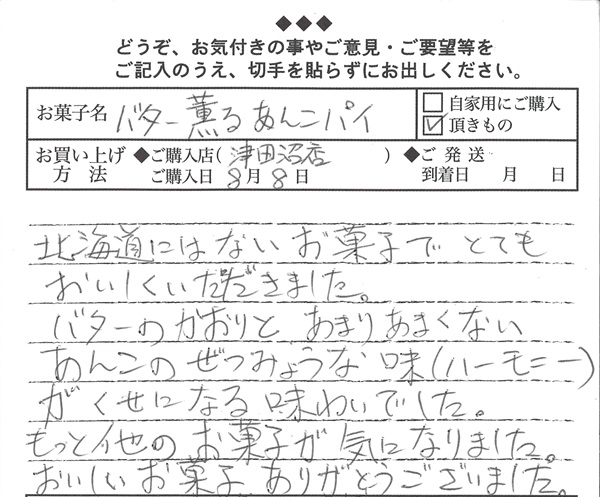 ◆◆◆
どうぞ、お気付きの事やご意見・ご要望等を
ご記入のうえ、切手を貼らずにお出しください。
お菓子名 バター薫るあんこパイ
□ 自家用にご購入
☑ 頂きもの
お買い上げ方法 ◆ご購入店(津田沼店) ◆ご発送
ご購入日 8月8日 到着日 月 日
北海道にはないお菓子でとても
おいしくいただきました。
バターのかおりと あまりあまくない
あんこのぜつみょうな味(ハーモニー)
がくせになる味わいでした。
もっと他のお菓子が気になりました。
おいしいお菓子ありがとうございました。